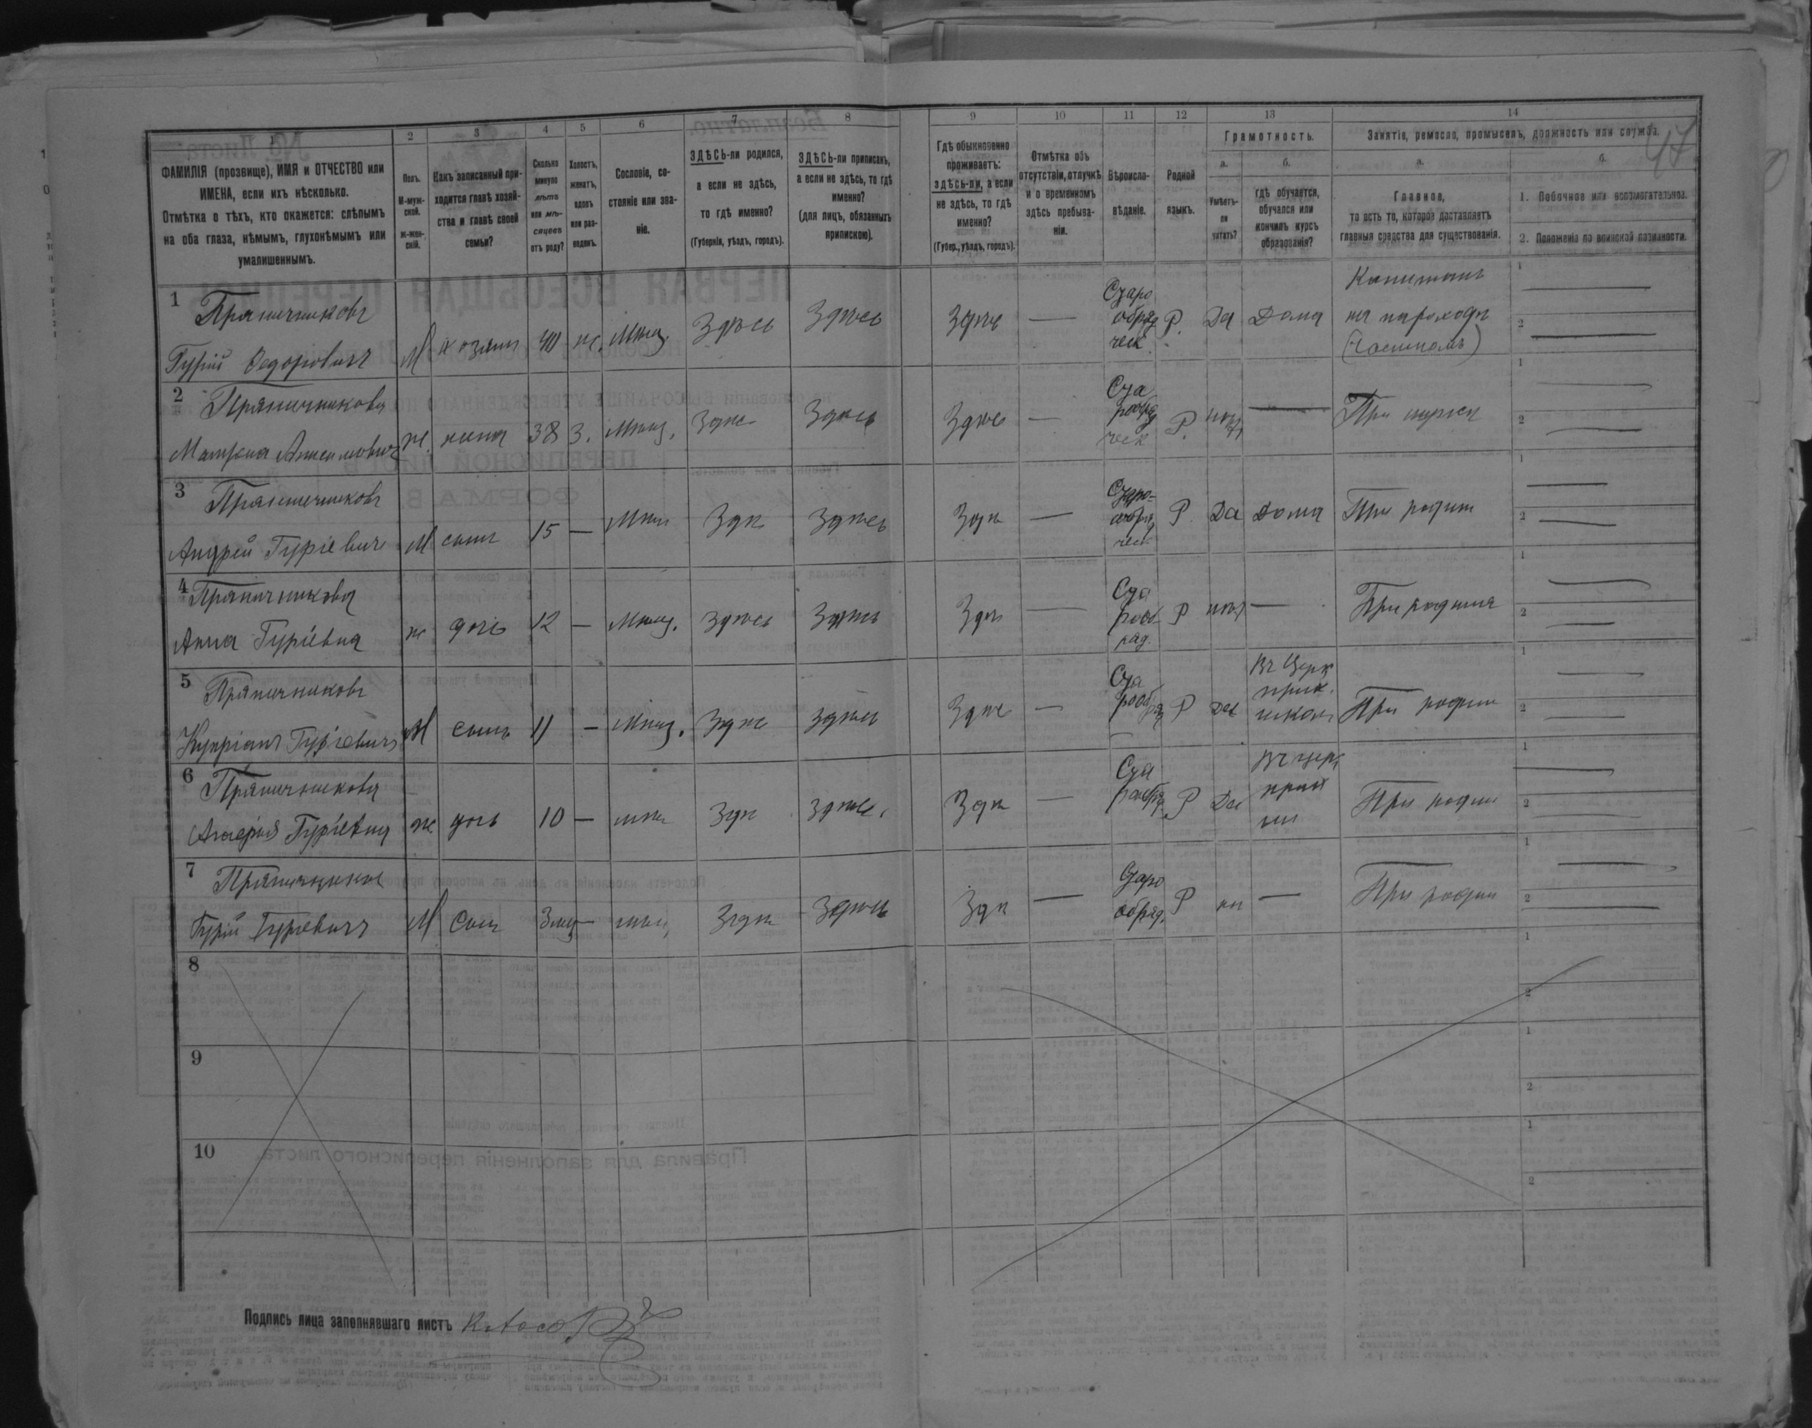 1
ФАМИЛІЯ (прозвище), ИМЯ и ОТЧЕСТВО или
ИМЕНА, если ихъ нѣсколько.
Отмѣтка о тѣхъ, кто окажется: слѣпымъ
на оба глаза, нѣмымъ, глухонѣмымъ или
умалишеннымъ.
2
Полъ.
М-муж-
ской.
ж-жен-
скій.
3
Какъ записанный при-
ходится главѣ хозяй-
ства и главѣ своей
семьи?
4
Сколько
минуло
лѣтъ
или мѣ-
сяцевъ
отъ роду?
5
Холостъ,
женатъ,
вдовъ
или раз-
веденъ.
6
Сословіе, со-
стояніе или зва-
ніе.
7
ЗДѢСЬ-ли родился,
а если не здѣсь,
то гдѣ именно?
(Губернія, уѣздъ, городъ).
8
ЗДѢСЬ-ли приписанъ,
а если не здѣсь, то гдѣ
именно?
(для лицъ, обязанныхъ
припискою).
9
Гдѣ обыкновенно
проживаетъ:
здѣсь-ли, а если
не здѣсь, то гдѣ
именно?
(Губер., уѣздъ, городъ).
10
Отмѣтка объ
отсутствіи, отлучкѣ
и о временномъ
здѣсь пребыва-
ніи.
11
Вѣроиспо-
вѣданіе.
12
Родной
языкъ.
13
Грамотность.
а.
Умѣетъ-
ли
читать?
б.
гдѣ обучается,
обучался или
кончилъ курсъ
образованія?
14
Занятіе, ремесло, промыселъ, должность или служба.
47
а.
Главное,
то есть то, которое доставляетъ
главныя средства для существованія.
б.
1. Побочное или вспомогательное.
2. Положеніе по воинской повинности.
1
Пряничниковъ
Гурій Федоровичъ
М хозяин 40 ж. Мѣщ. Здѣсь Здѣсь Здѣс — Старо
обряд
ческ. Р. Да Дома Капитанъ
на пароходѣ
1
2
2
Пряничникова
Матрена
ж. жена 38 З. Мѣщ. Здѣс Здѣсь Здѣс — Ста
рообряд
ческ Р. — При мужѣ
1
2
3
Пряничниковъ
Андрей Гуріевич
М сынъ 15 — Мѣщ Здѣ Здѣсь Здѣ — Старо-
обряд
ческ. Р. Да Дома При родит
1
2
4
Пряничникова
Анна Гуріевна
ж дочь 12 — Мѣщ. Здѣсь Здѣсь Здѣ — Ста
рооб
ряд. Р — При родит
1
2
5
Пряничниковъ
Купріанъ Гуріевичъ
М сынъ 11 — Мѣщ. Здѣс Здѣсь Здѣс — Ста
рообряд Р Да Въ Церк
прих.
школѣ При родит
1
2
6
Пряничникова
Гуріевна
ж дочь 10 — мѣщ Здѣ Здѣс. Здѣ — Ста
рообряд Р Да Въ церк При родит
1
2
7
Пряничников
Гурій Гуріевичъ
М Сын 3мѣс — мѣщ, Здѣ Здѣсь Здѣ — Старо
обряд. Р — При родит
1
2
8
1
2
9
1
2
10
1
2
Подпись лица заполнявшаго листъ